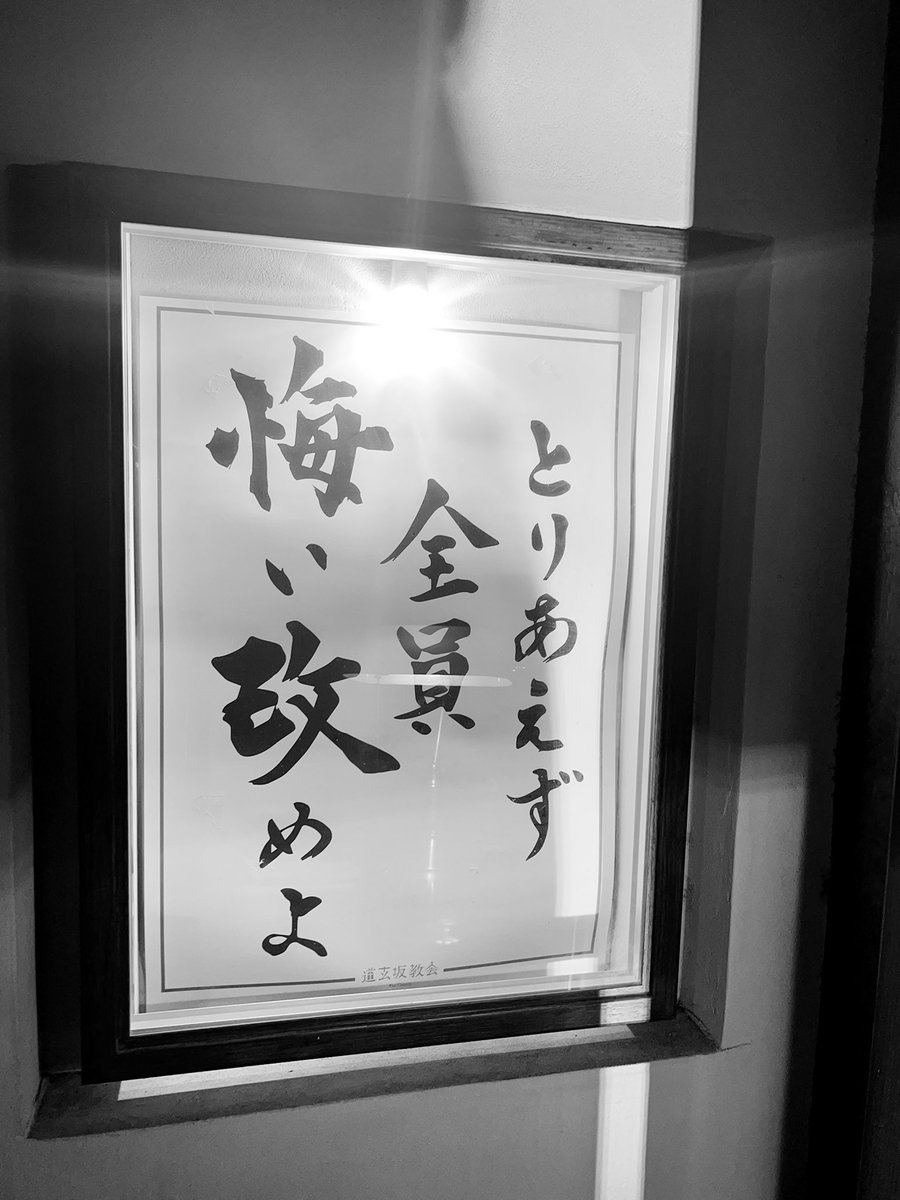 とりあえず
全員
悔い改めよ
道玄坂教会